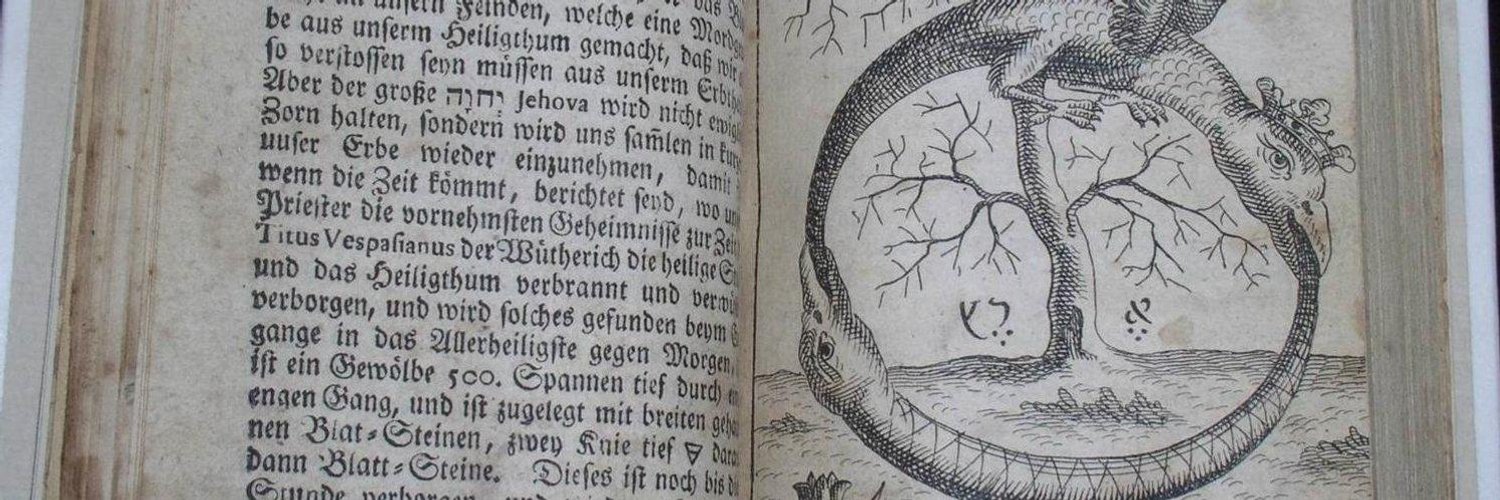 das
an unſern Feinden, welche eine Mord
be aus unſerm Heiligthum gemacht, daß wir
ſo verſtoſſen ſeyn müſſen aus unſerm Erbthe
Aber der große יהוה Jehova wird nicht ewig
Zorn halten, ſondern wird uns ſam̃len in kur
unſer Erbe wieder einzunehmen, damit
wenn die Zeit kömmt, berichtet ſeyd, wo un
Prieſter die vornehmſten Geheimniſſe zur Zei
Titus Veſpaſianus der Wütherich die heilige S
und das Heiligthum verbrannt und verwü
verborgen, und wird ſolches gefunden beym
gange in das Allerheiligſte gegen Morgen,
iſt ein Gewölbe 500. Spannen tief durch
engen Gang, und iſt zugelegt mit breiten geha
nen Blat⸗Steinen, zwey Knie tief 🜃 dara
dann Blatt⸗Steine. Dieſes iſt noch bis
Stunde verborgen, und
אֶ רֶץ